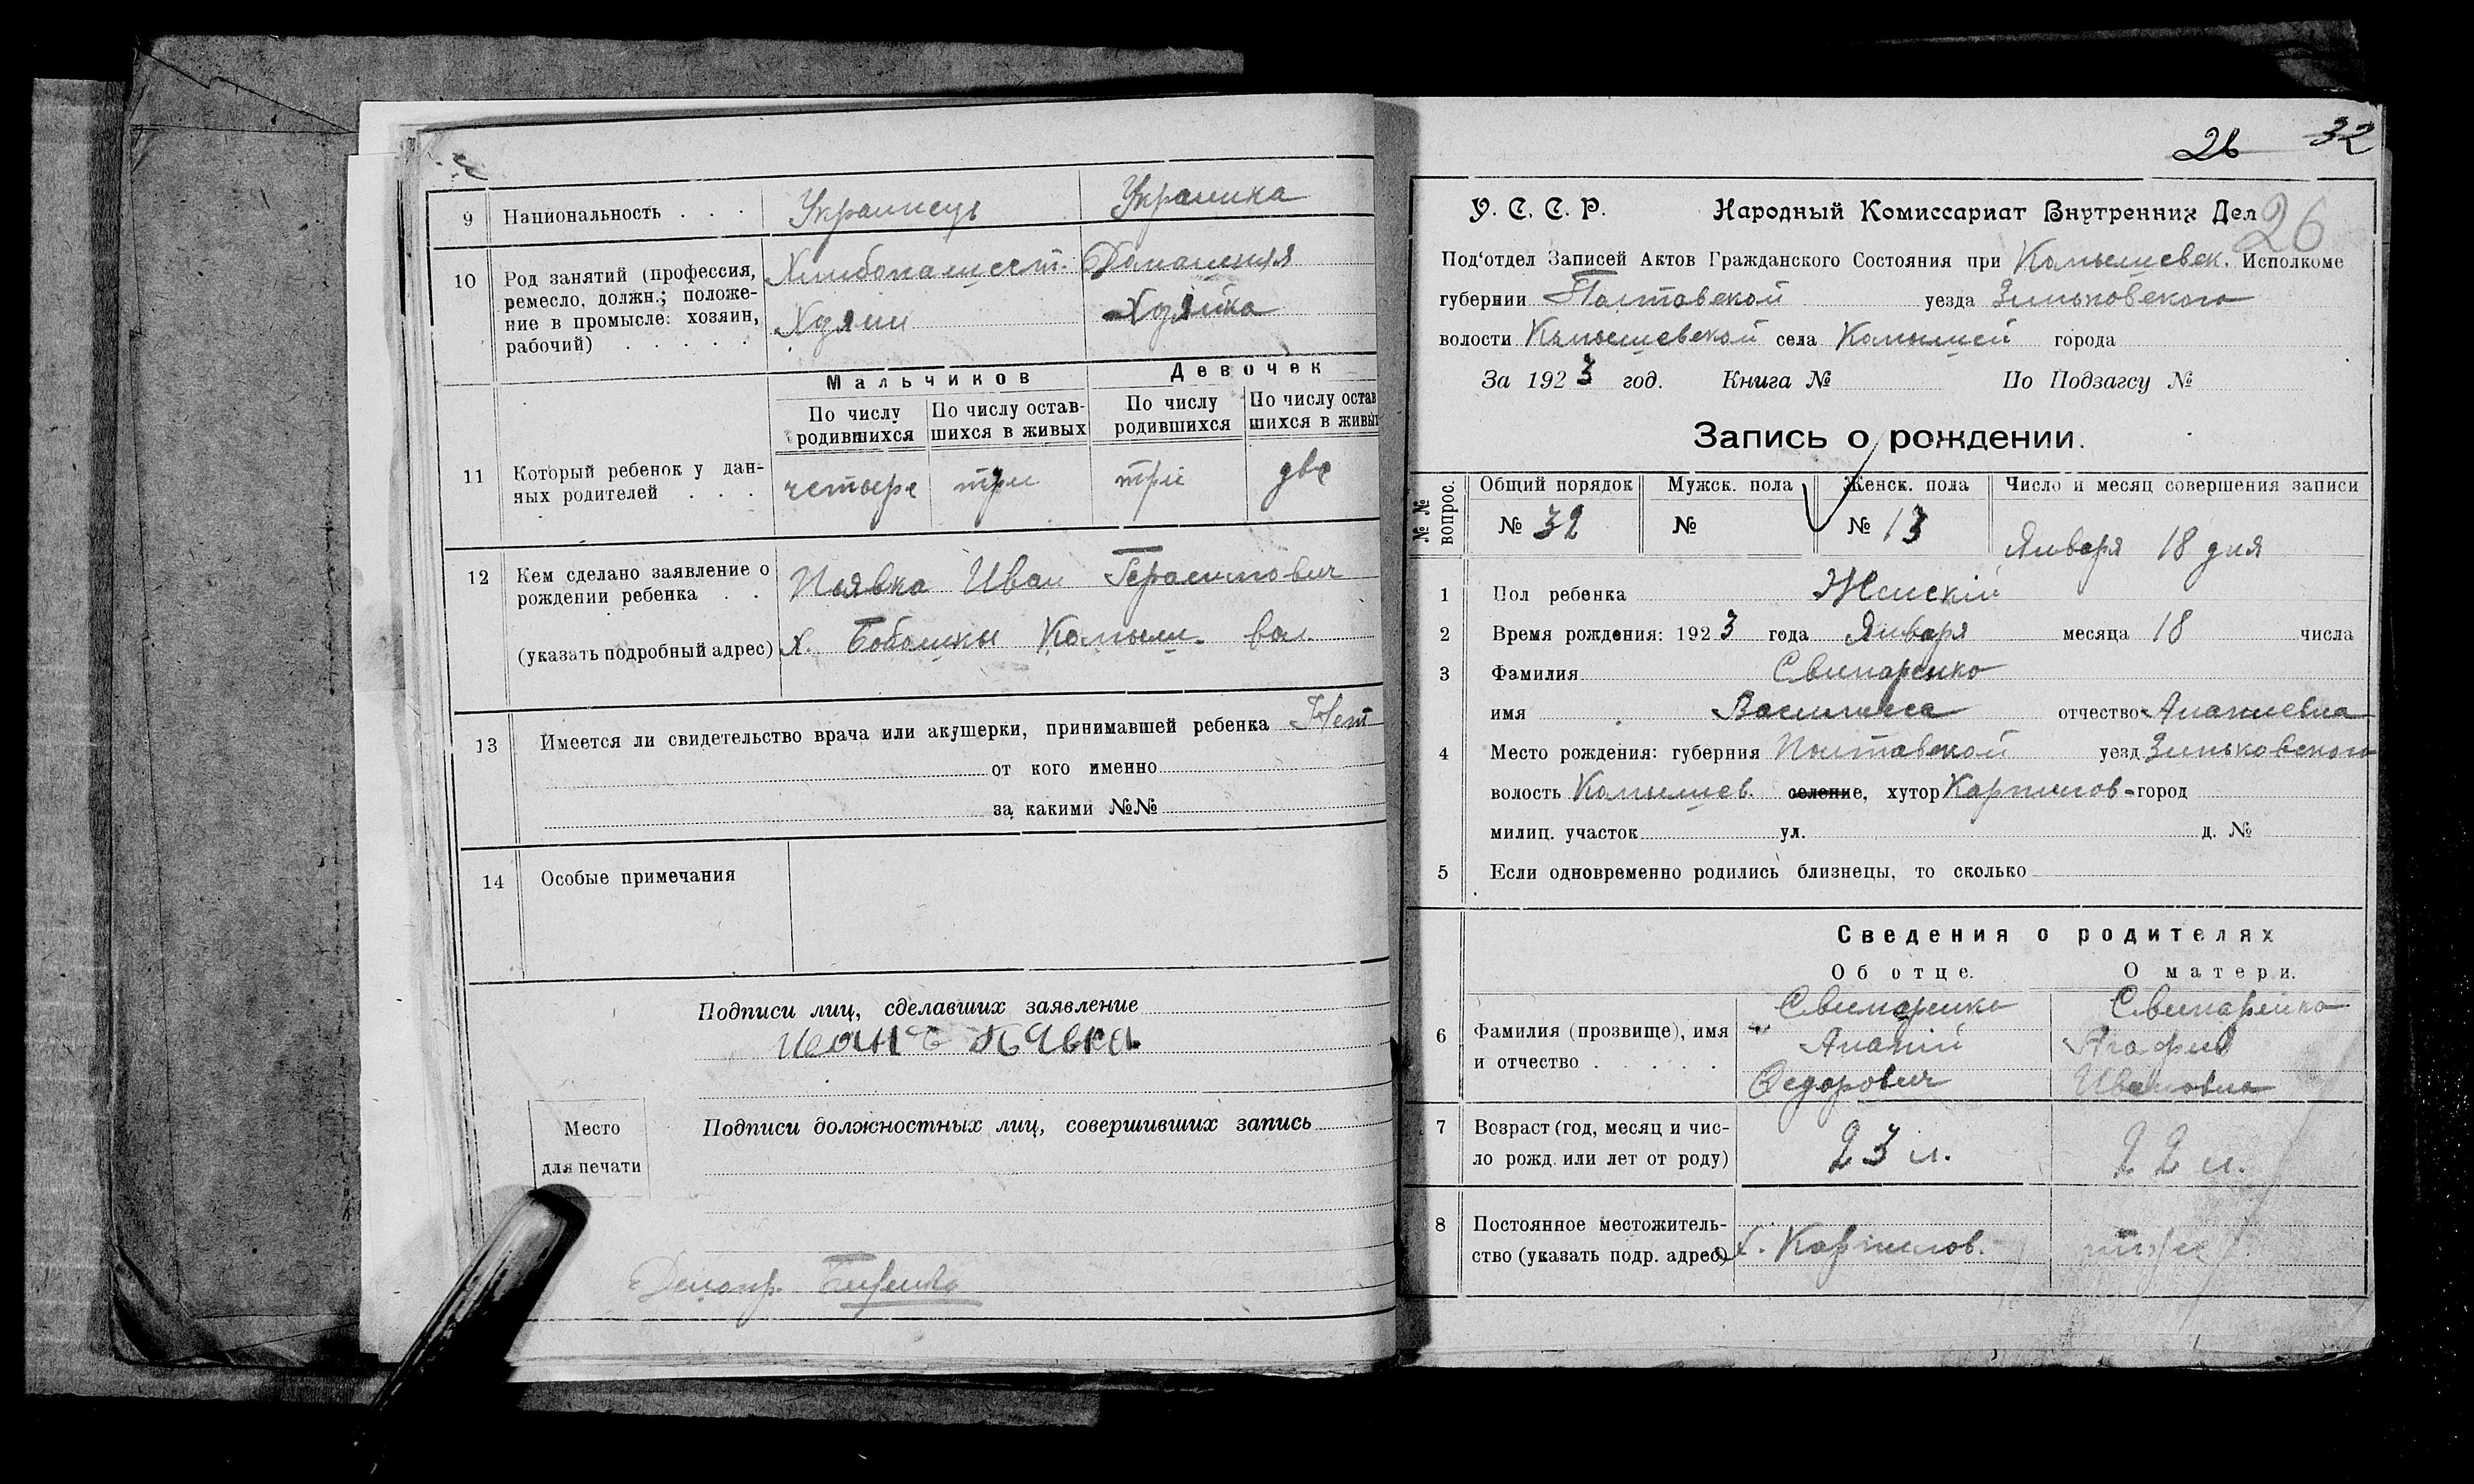 9 Национальность . . . Украинець Украинка
10 Род занятий (профессия, Хлибопашест. Домашния
ремесло, должн.; положе-
ние в промысле: хозяин, Хозяин Хозяйка
рабочий) . . . . .
Мальчиков Девочек
По числу По числу остав- По числу По числу остав
родившихся шихся в живых родившихся шихся в живых
11 Который ребенок у дан- четыре три три две
ных родителей . . .
12 Кем сделано заявление о Пьявка Иван Герасимович
рождении ребенка . .
(указать подробный адрес) х. Бобошки Камыш. вол.
13 Имеется ли свидетельство врача или акушерки, принимавшей ребенка Нет
от кого именно
за какими №№
14 Особые примечания
Подписи лиц, сделавших заявление
Иванъ Пявка
Место
для печати
Подписи должностных лиц, совершивших запись
Делопр.
26 32
У. С. С. Р. Народный Комиссариат Внутренних Дел 26
Под'отдел Записей Актов Гражданского Состояния при Камышевск. Исполкоме
губернии Полтавской уезда Зиньковского
волости Камышевской села Камышей города
За 1923 год. Книга № По Подзагсу №
Запись о рождении.
№№ вопрос. Общий порядок Мужск. пола Женск. пола Число и месяц совершения записи
№ 32 № № 13 Января 18 дня
1 Пол ребенка Женскій
2 Время рождения: 1923 года Января месяца 18 числа
3 Фамилия Свинаренко
имя Василиса отчество Ананиевна
4 Место рождения: губерния Полтавской уезд Зиньковского
волость Камышев. селение, хутор Карпилов город
милиц. участок ул. д. №
5 Если одновременно родились близнецы, то сколько
Сведения о родителях
Об отце. О матери.
Свинаренко Свинаренко
6 Фамилия (прозвище), имя Ананій Агафия
и отчество . . . . . Федорович Ивановна
7 Возраст (год, месяц и чис- 23 л. 22 л.
ло рожд. или лет от роду)
8 Постоянное местожитель-
ство (указать подр. адрес) х. Карпилов. тоже